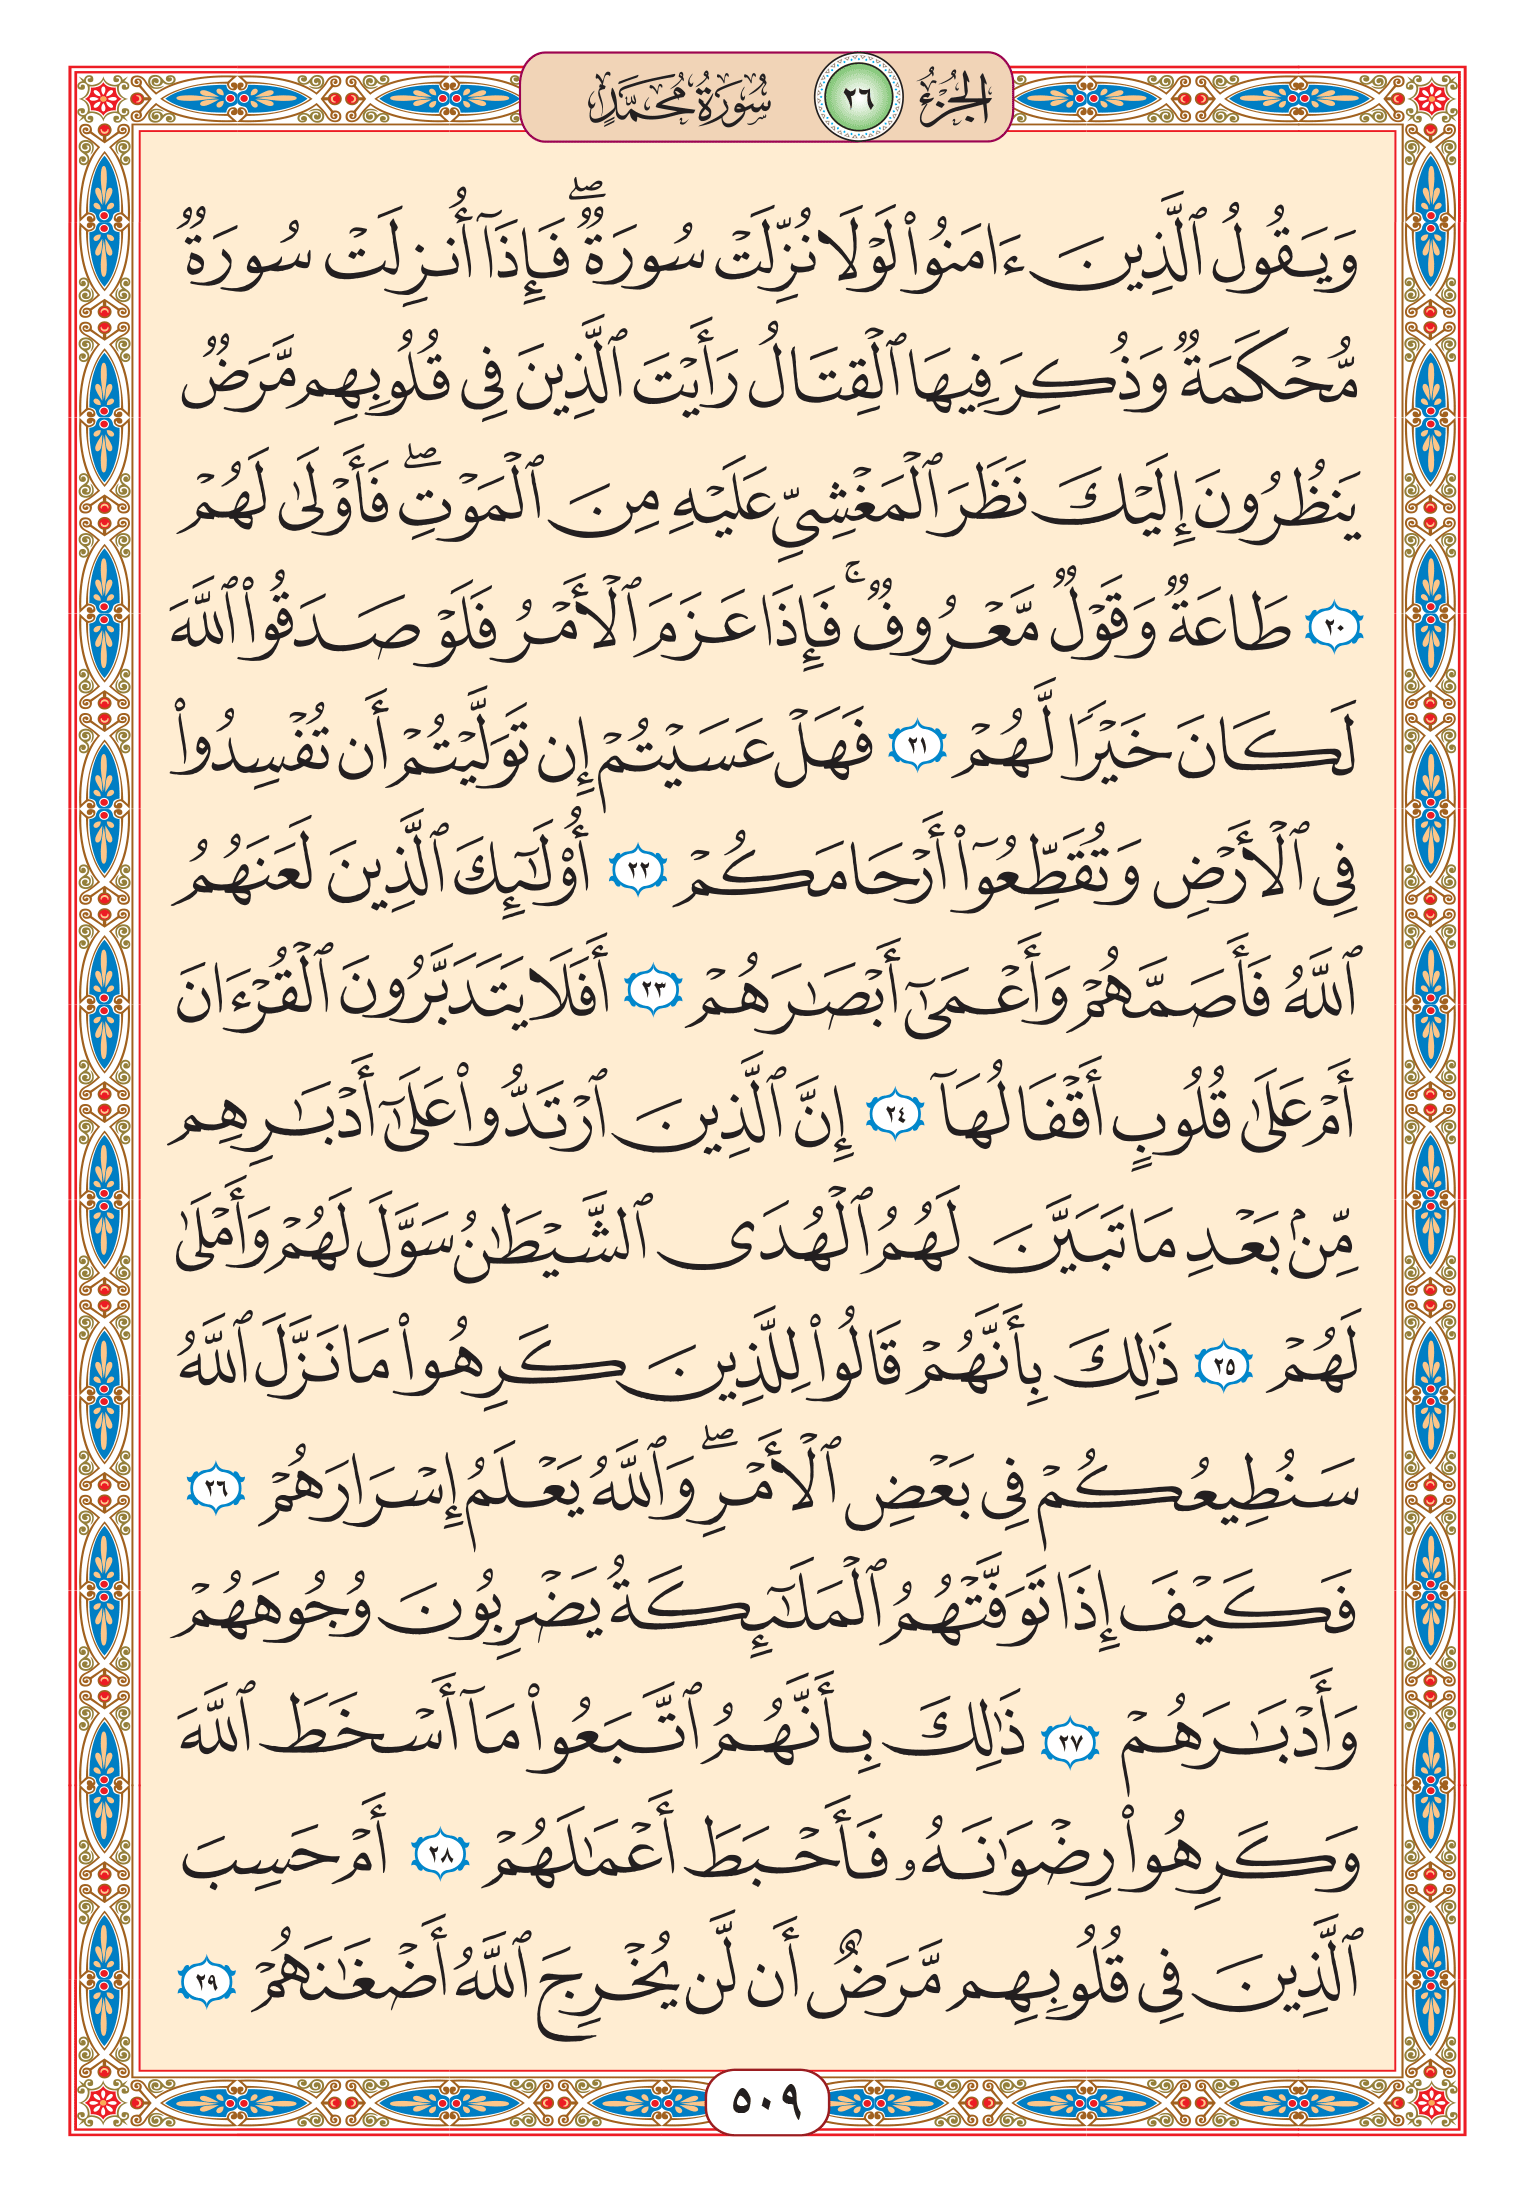 الجزء ٢٦ سورة محمد
وَيَقُولُ ٱلَّذِينَ ءَامَنُوا۟ لَوْلَا نُزِّلَتْ سُورَةٌ ۖ فَإِذَآ أُنزِلَتْ سُورَةٌ
مُّحْكَمَةٌ وَذُكِرَ فِيهَا ٱلْقِتَالُ رَأَيْتَ ٱلَّذِينَ فِى قُلُوبِهِم مَّرَضٌ
يَنظُرُونَ إِلَيْكَ نَظَرَ ٱلْمَغْشِىِّ عَلَيْهِ مِنَ ٱلْمَوْتِ ۖ فَأَوْلَىٰ لَهُمْ
٢٠ طَاعَةٌ وَقَوْلٌ مَّعْرُوفٌ ۚ فَإِذَا عَزَمَ ٱلْأَمْرُ فَلَوْ صَدَقُوا۟ ٱللَّهَ
لَكَانَ خَيْرًا لَّهُمْ ٢١ فَهَلْ عَسَيْتُمْ إِن تَوَلَّيْتُمْ أَن تُفْسِدُوا۟
فِى ٱلْأَرْضِ وَتُقَطِّعُوٓا۟ أَرْحَامَكُمْ ٢٢ أُو۟لَـٰٓئِكَ ٱلَّذِينَ لَعَنَهُمُ
ٱللَّهُ فَأَصَمَّهُمْ وَأَعْمَىٰٓ أَبْصَـٰرَهُمْ ٢٣ أَفَلَا يَتَدَبَّرُونَ ٱلْقُرْءَانَ
أَمْ عَلَىٰ قُلُوبٍ أَقْفَالُهَآ ٢٤ إِنَّ ٱلَّذِينَ ٱرْتَدُّوا۟ عَلَىٰٓ أَدْبَـٰرِهِم
مِّنۢ بَعْدِ مَا تَبَيَّنَ لَهُمُ ٱلْهُدَى ٱلشَّيْطَـٰنُ سَوَّلَ لَهُمْ وَأَمْلَىٰ
لَهُمْ ٢٥ ذَٰلِكَ بِأَنَّهُمْ قَالُوا۟ لِلَّذِينَ كَرِهُوا۟ مَا نَزَّلَ ٱللَّهُ
سَنُطِيعُكُمْ فِى بَعْضِ ٱلْأَمْرِ ۖ وَٱللَّهُ يَعْلَمُ إِسْرَارَهُمْ ٢٦
فَكَيْفَ إِذَا تَوَفَّتْهُمُ ٱلْمَلَـٰٓئِكَةُ يَضْرِبُونَ وُجُوهَهُمْ
وَأَدْبَـٰرَهُمْ ٢٧ ذَٰلِكَ بِأَنَّهُمُ ٱتَّبَعُوا۟ مَآ أَسْخَطَ ٱللَّهَ
وَكَرِهُوا۟ رِضْوَٰنَهُۥ فَأَحْبَطَ أَعْمَـٰلَهُمْ ٢٨ أَمْ حَسِبَ
ٱلَّذِينَ فِى قُلُوبِهِم مَّرَضٌ أَن لَّن يُخْرِجَ ٱللَّهُ أَضْغَـٰنَهُمْ ٢٩
٥٠٩